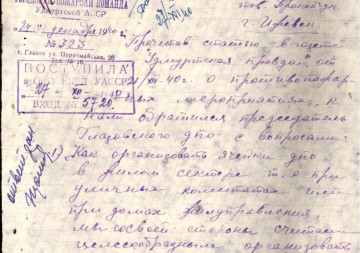 ГОРОДСКАЯ ПОЖАРНАЯ КОМАНДА
Удмуртской АССР
тов.
г. Ижевск.
декабря 1940 г.
№ 327
г. Глазов ул. Первомайская, 26
ПОСТУПИЛА
УАССР
27 - XII - 40
ВХОД. № 5720
Прочитав статью в газете
"Удмуртская правда" от
XII-40г. О противопожар
ных мероприятиях, к
нам обратился председатель
Глазовского ДПО с вопросами:
Как организовать ячейки ДПО
в жилом секторе т.о при
уличных комитетах или
при домах
мы со своей стороны считаем
целесообразным организовать